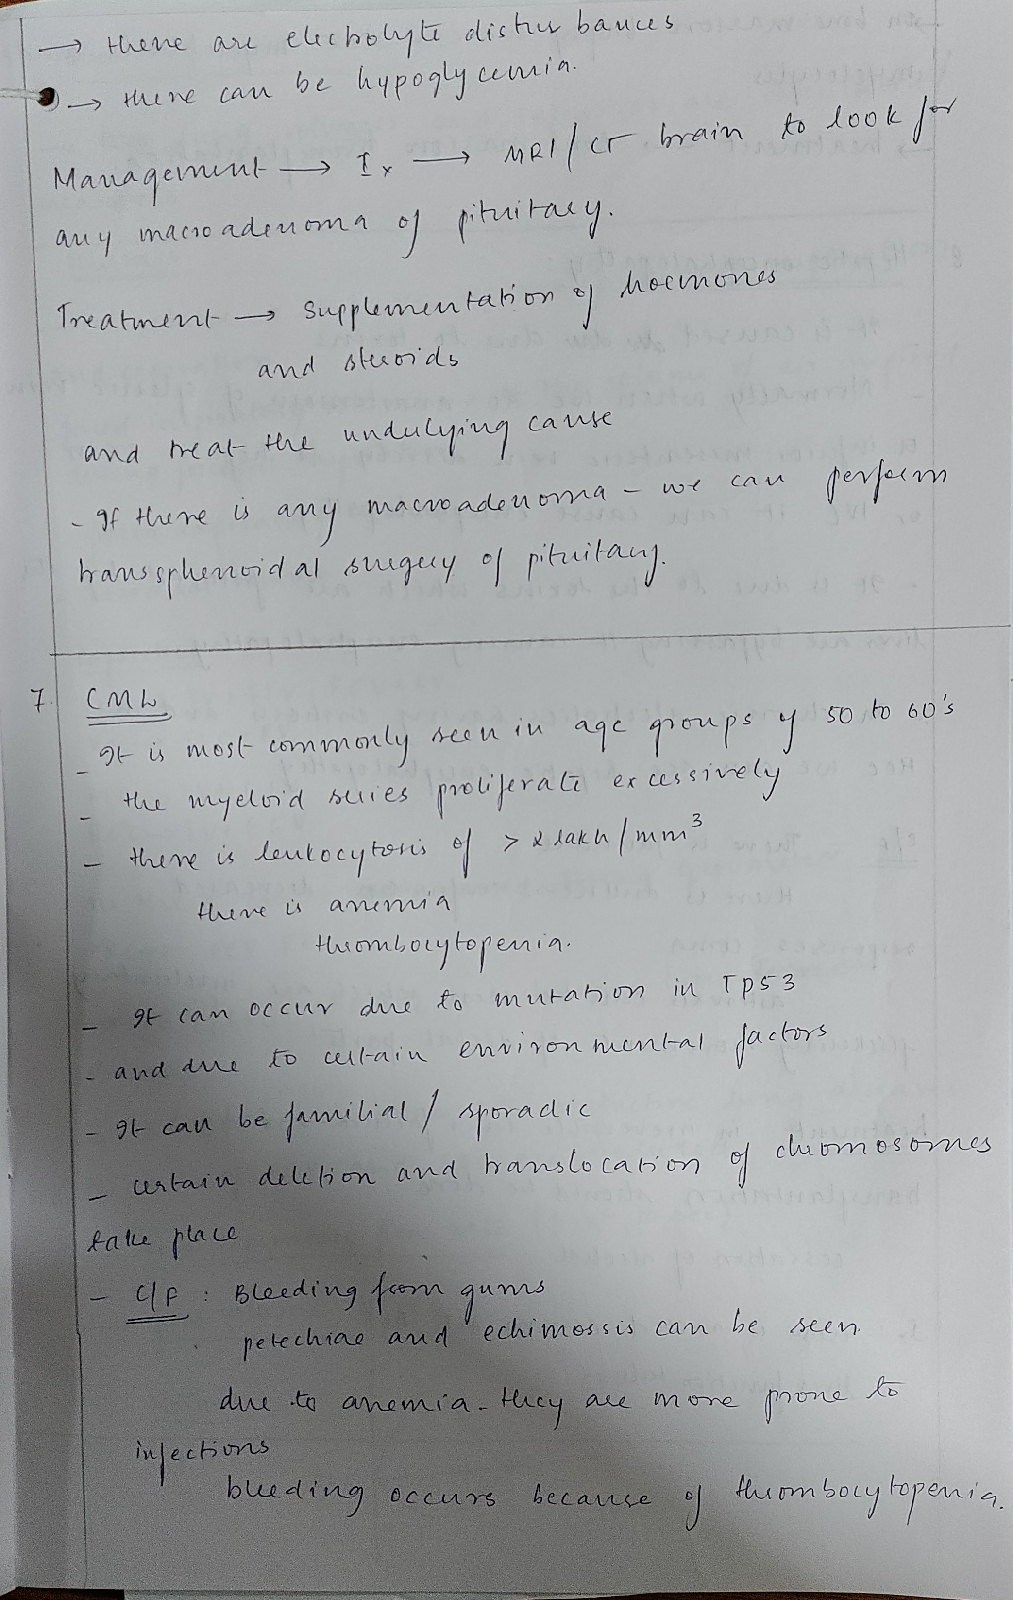 → there are elecbolyte distur bances
→ there can be hypoglycemia.
Management → Ix → MRI/CT brain to look for
any macroadenoma of pituitary.
Treatment → Supplementation of hormones
and steroids
and treat the underlying cause
- If there is any macroadenoma - we can perform
transsphenoidal surgery of pituitary.
7. CML
- It is most commonly seen in age groups of 50 to 60's
- the myeloid series proliferate excessively
- there is leukocytosis of > 2 lakh/mm³
there is anemia
thrombocytopenia.
- It can occur due to mutation in TP53
- and due to certain environmental factors
- It can be familial / sporadic
- certain deletion and translocation of chromosomes
take place
- C/F : Bleeding from gums
petechiae and echimossis can be seen
due to anemia - they are more prone to
infections
bleeding occurs because of thrombocytopenia.